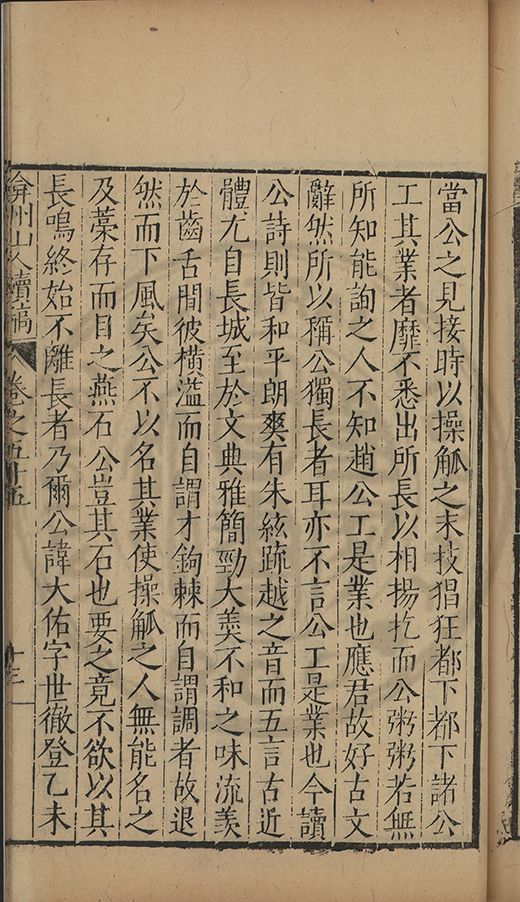 當公之見接時以操觚之末技猖狂都下都下諸公
工其業者靡不悉出所長以相揚扢而公粥粥若無
所知能詢之人不知趙公工是業也應君故好古文
辭然所以稱公獨長者耳亦不言公工是業也今讀
公詩則皆和平朗爽有朱絃疏越之音而五言古近
體尤自長城至於文典雅簡勁大羹不和之味流羨
於齒舌間彼橫溢而自謂才鉤棘而自謂調者故退
然而下風矣公不以名其業使操觚之人無能名之
及藁存而目之燕石公豈其石也要之竟不欲以其
長鳴終始不離長者乃爾公諱大佑字世徹登乙未
弇州山人續稿 卷之五十五 十三